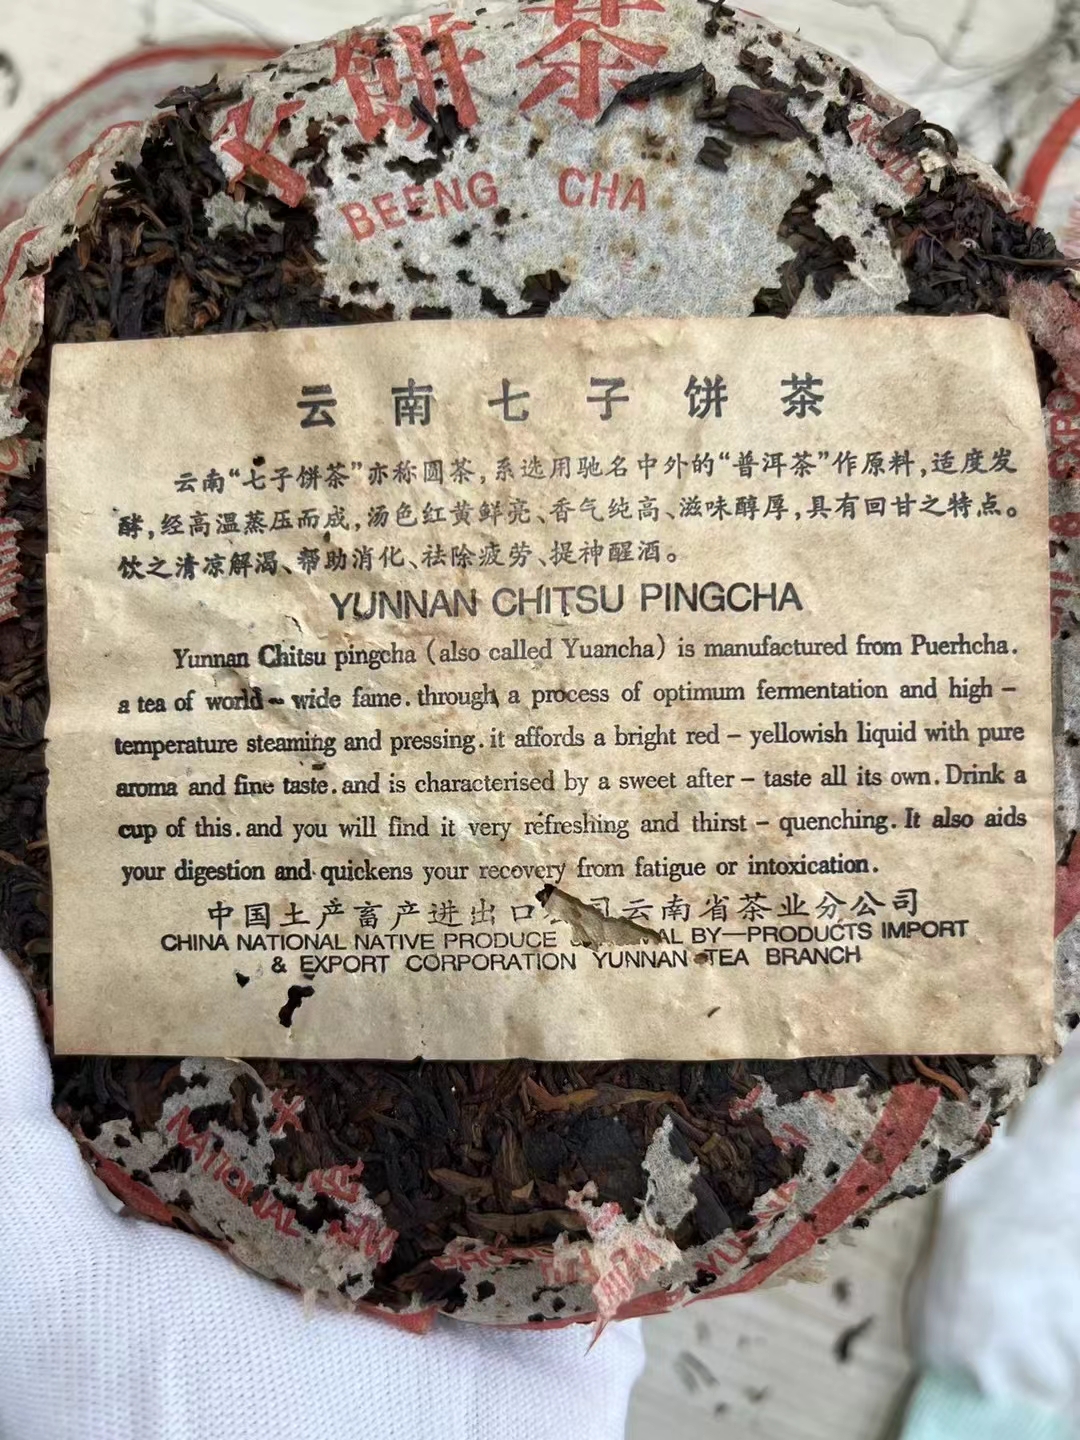 餅茶
BEENG CHA
云南七子饼茶
云南“七子饼茶”亦称圆茶,系选用驰名中外的“普洱茶”作原料,适度发
酵,经高温蒸压而成,汤色红黄鲜亮、香气纯高、滋味醇厚,具有回甘之特点。
饮之清凉解渴、帮助消化、祛除疲劳、提神醒酒。
YUNNAN CHITSU PINGCHA
Yunnan Chitsu pingcha (also called Yuancha) is manufactured from Puerhcha.
a tea of world-wide fame. through a process of optimum fermentation and high-
temperature steaming and pressing. it affords a bright red-yellowish liquid with pure
aroma and fine taste. and is characterised by a sweet after-taste all its own. Drink a
cup of this. and you will find it very refreshing and thirst-quenching. It also aids
your digestion and quickens your recovery from fatigue or intoxication.
中国土产畜产进出口 司云南省茶业分公司
CHINA NATIONAL NATIVE PRODUCE AL BY—PRODUCTS IMPORT
& EXPORT CORPORATION YUNNAN TEA BRANCH
NATIONAL